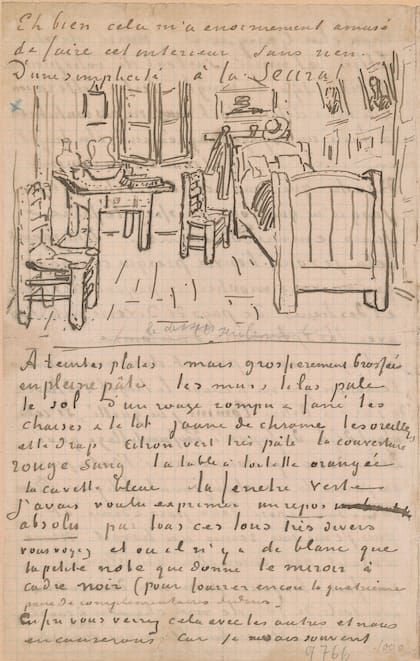 Eh bien cela m'a enormement amusé
de faire cet interieur sans rien.
D'une simplicité à la Seurat
A teintes plates mais grossierement brossées
en pleine pâte les murs lilas pale
le sol d'un rouge rompu & fané les
chaises & le lit jaune de chrome les oreillers
et le drap citron vert très pâle la couverture
rouge sang la table à toilette orangée
la cuvette bleue la fenetre verte
j'avais voulu exprimer un repos
absolu par tous ces tons très divers
vous voyez et où il n'y a de blanc que
la petite note que donne le miroir à
cadre noir (pour fourrer encore la quatrième
paire de complementaires dedans)
Enfin vous verrez cela avec les autres et nous
en causerons car je ne sais souvent
9766